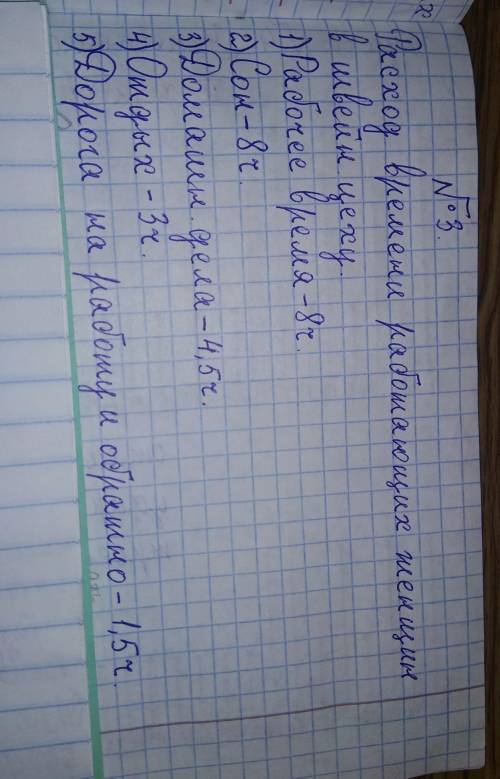 №3.
Расход времени работающих женщин
в швейн. цеху.
1) Рабочее время - 8ч.
2) Сон - 8ч.
3) Домашн. дела - 4,5ч.
4) Отдых - 3ч.
5) Дорога на работу и обратно - 1,5ч.
х